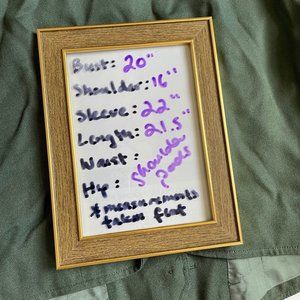 Bust: 20"
Shoulder: 16"
Sleeve: 22"
Length: 21.5"
Waist:
Hip:
Shoulder
pads
*measurements
taken flat